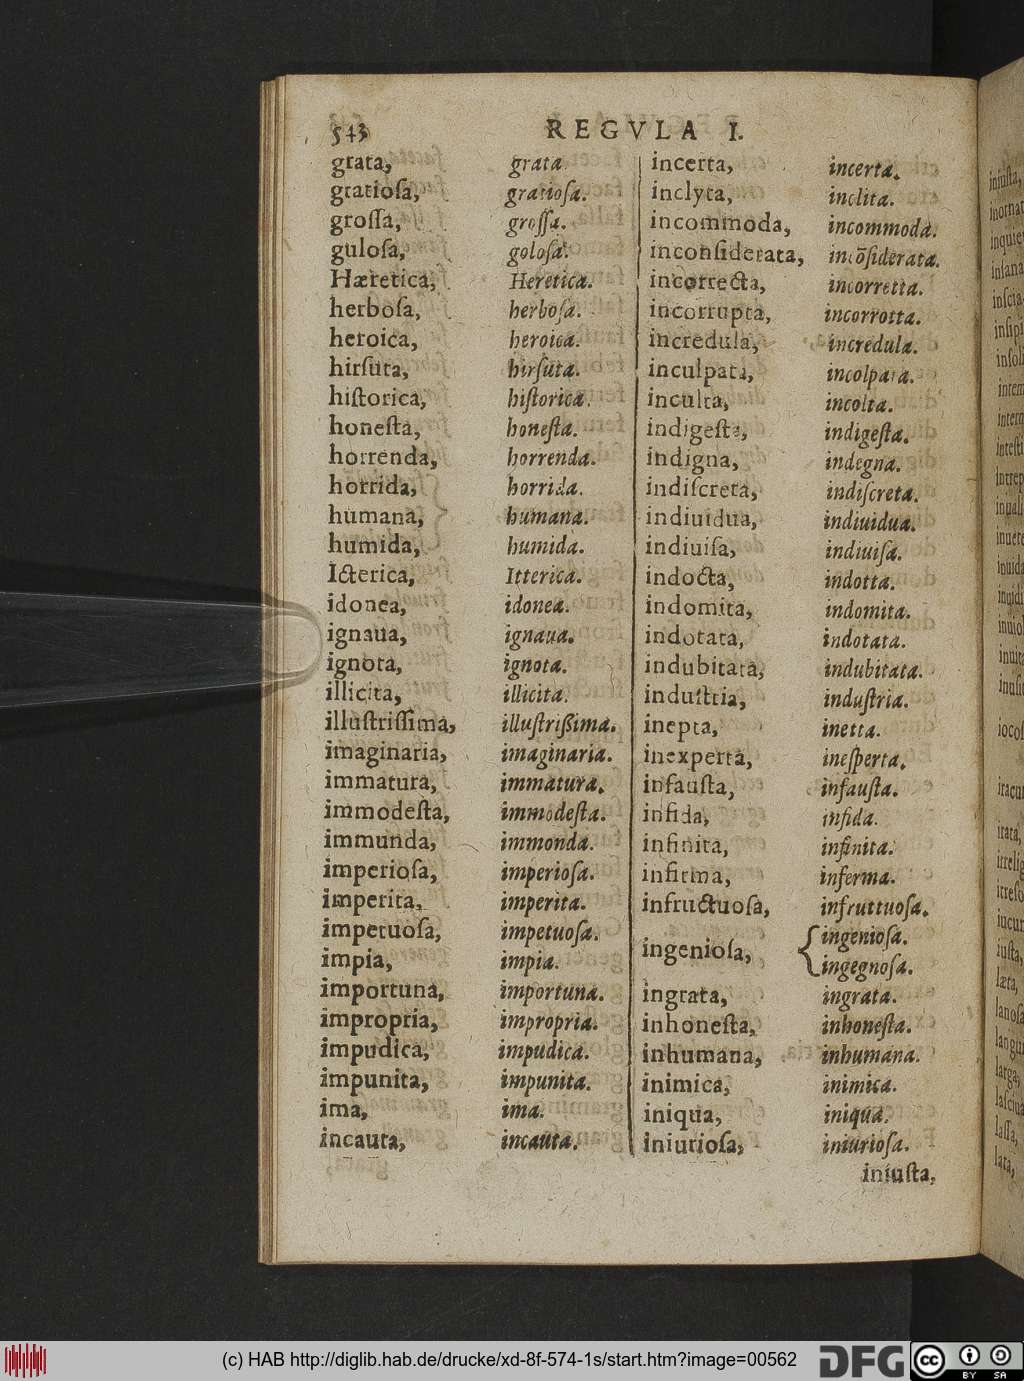 543 REGVLA I.
grata, grata
gratiosa, gratiosa.
grossa, grossa.
gulosa, golosa.
Hæretica, Heretica.
herbosa, herbosa.
heroica, heroica.
hirsuta, hirsuta.
historica, historica.
honesta, honesta.
horrenda, horrenda.
horrida, horrida.
humana, humana.
humida, humida.
Icterica, Itterica.
idonea, idonea.
ignaua, ignaua.
ignota, ignota.
illicita, illicita.
illustrissima, illustrißima.
imaginaria, imaginaria.
immatura, immatura.
immodesta, immodesta.
immunda, immonda.
imperiosa, imperiosa.
imperita, imperita.
impetuosa, impetuosa.
impia, impia.
importuna, importuna.
impropria, impropria.
impudica, impudica.
impunita, impunita.
ima, ima.
incauta, incauta.
incerta, incerta.
inclyta, inclita.
incommoda, incommoda.
inconsiderata, incõsiderata.
incorrecta, incorretta.
incorrupta, incorrotta.
incredula, incredula.
inculpata, incolpata.
inculta, incolta.
indigesta, indigesta.
indigna, indegna.
indiscreta, indiscreta.
indiuidua, indiuidua.
indiuisa, indiuisa.
indocta, indotta.
indomita, indomita.
indotata, indotata.
indubitata, indubitata.
industria, industria.
inepta, inetta.
inexperta, inesperta.
infausta, infausta.
infida, infida.
infinita, infinita.
infirma, inferma.
infructuosa, infruttuosa.
ingeniosa, ingeniosa.
ingegnosa.
ingrata, ingrata.
inhonesta, inhonesta.
inhumana, inhumana.
inimica, inimica.
iniqua, iniqua.
iniuriosa, iniuriosa.
iniusta,
(c) HAB http://diglib.hab.de/drucke/xd-8f-574-1s/start.htm?image=00562 DFG cc BY SA